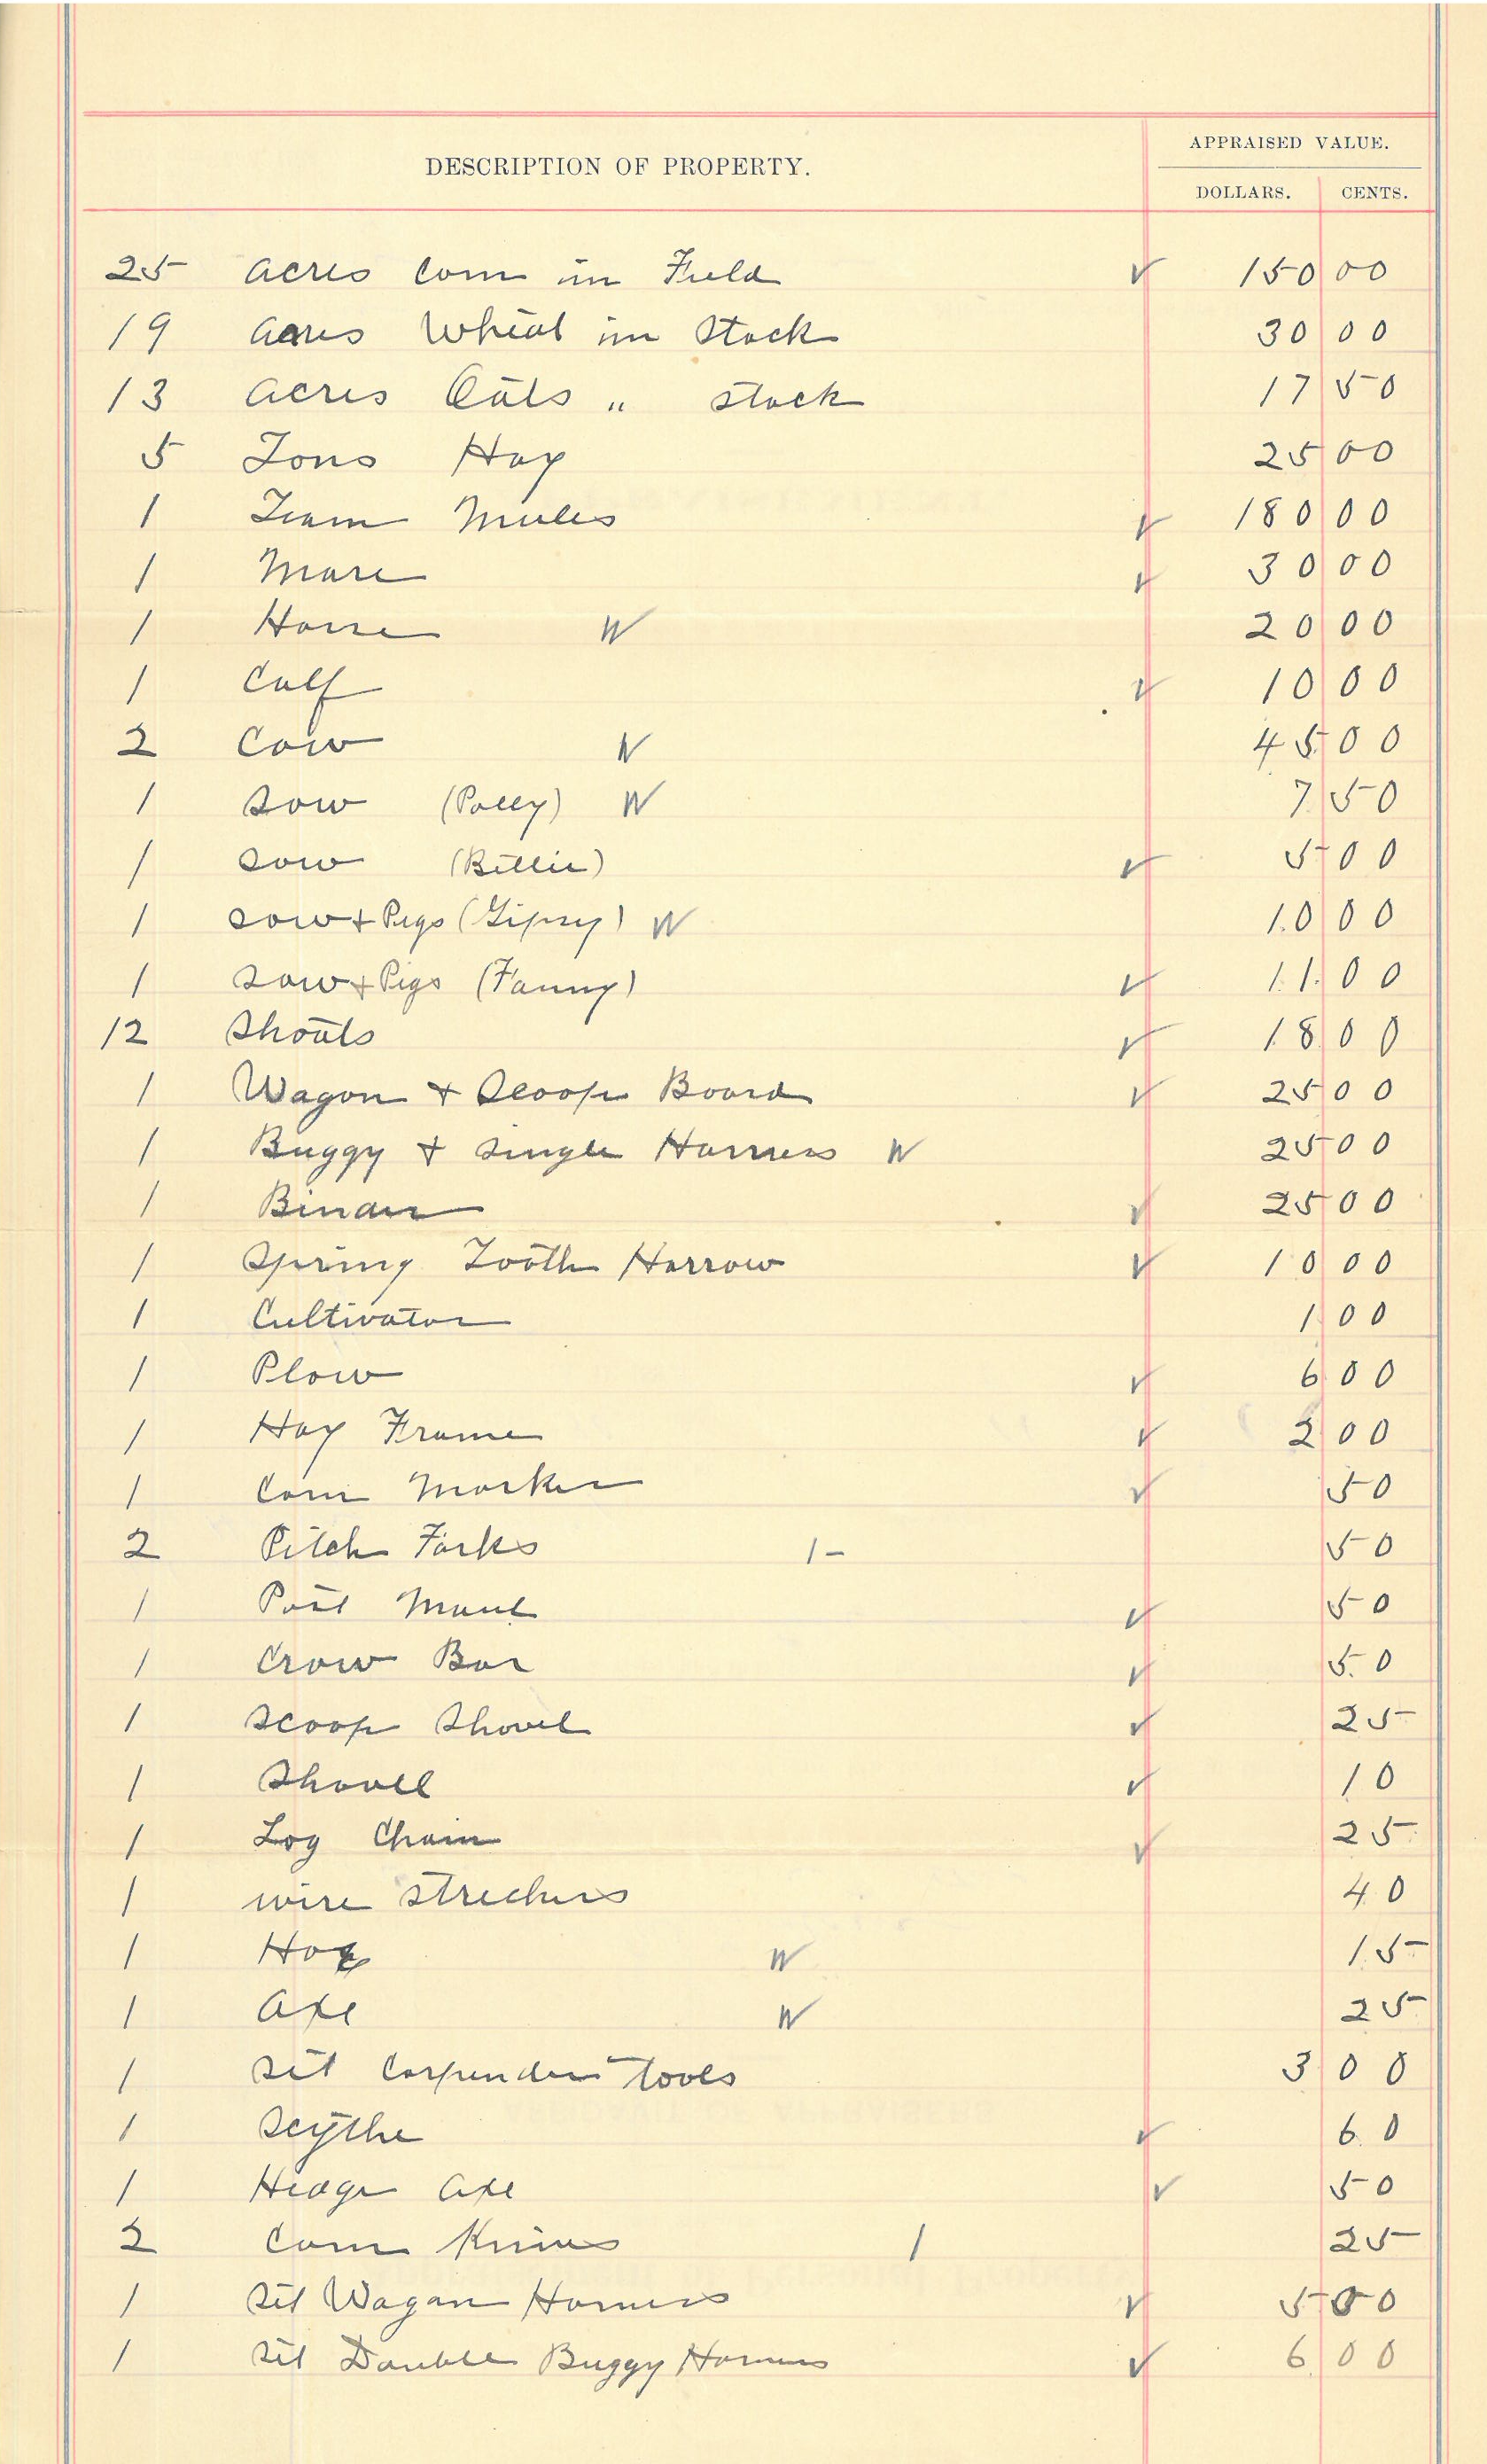 DESCRIPTION OF PROPERTY.
APPRAISED VALUE.
DOLLARS. CENTS.
25 acres Corn in Field ✓ 150 00
19 acres Wheat in Stack 30 00
13 acres Oats " stack 17 50
5 Tons Hay 25 00
1 Team Mules ✓ 180 00
1 Mare ✓ 30 00
1 Horse W 20 00
1 Calf ✓ 10 00
2 Cow W 45 00
1 Sow (Polly) W 7 50
1 Sow (Billie) ✓ 5 00
1 Sow + Pigs (Gipsy) W 10 00
1 Sow + Pigs (Fanny) ✓ 11 00
12 Shoats ✓ 18 00
1 Wagon + Scoop Board ✓ 25 00
1 Buggy + Single Harness W 25 00
1 Binder ✓ 25 00
1 Spring Tooth Harrow ✓ 10 00
1 Cultivator 1 00
1 Plow ✓ 6 00
1 Hay Frame ✓ 2 00
1 Corn Marker ✓ 50
2 Pitch Forks 1- 50
1 Post Maul ✓ 50
1 Crow Bar ✓ 50
1 Scoop Shovel ✓ 25
1 Shovel ✓ 10
1 Log Chain ✓ 25
1 wire strechers 40
1 Hoe W 15
1 Axe W 25
1 Set Carpender Tools 3 00
1 Scythe ✓ 60
1 Hedge Axe ✓ 50
2 Corn Knives 1 25
1 Set Wagon Harness ✓ 5 00
1 Set Double Buggy Harness ✓ 6 00